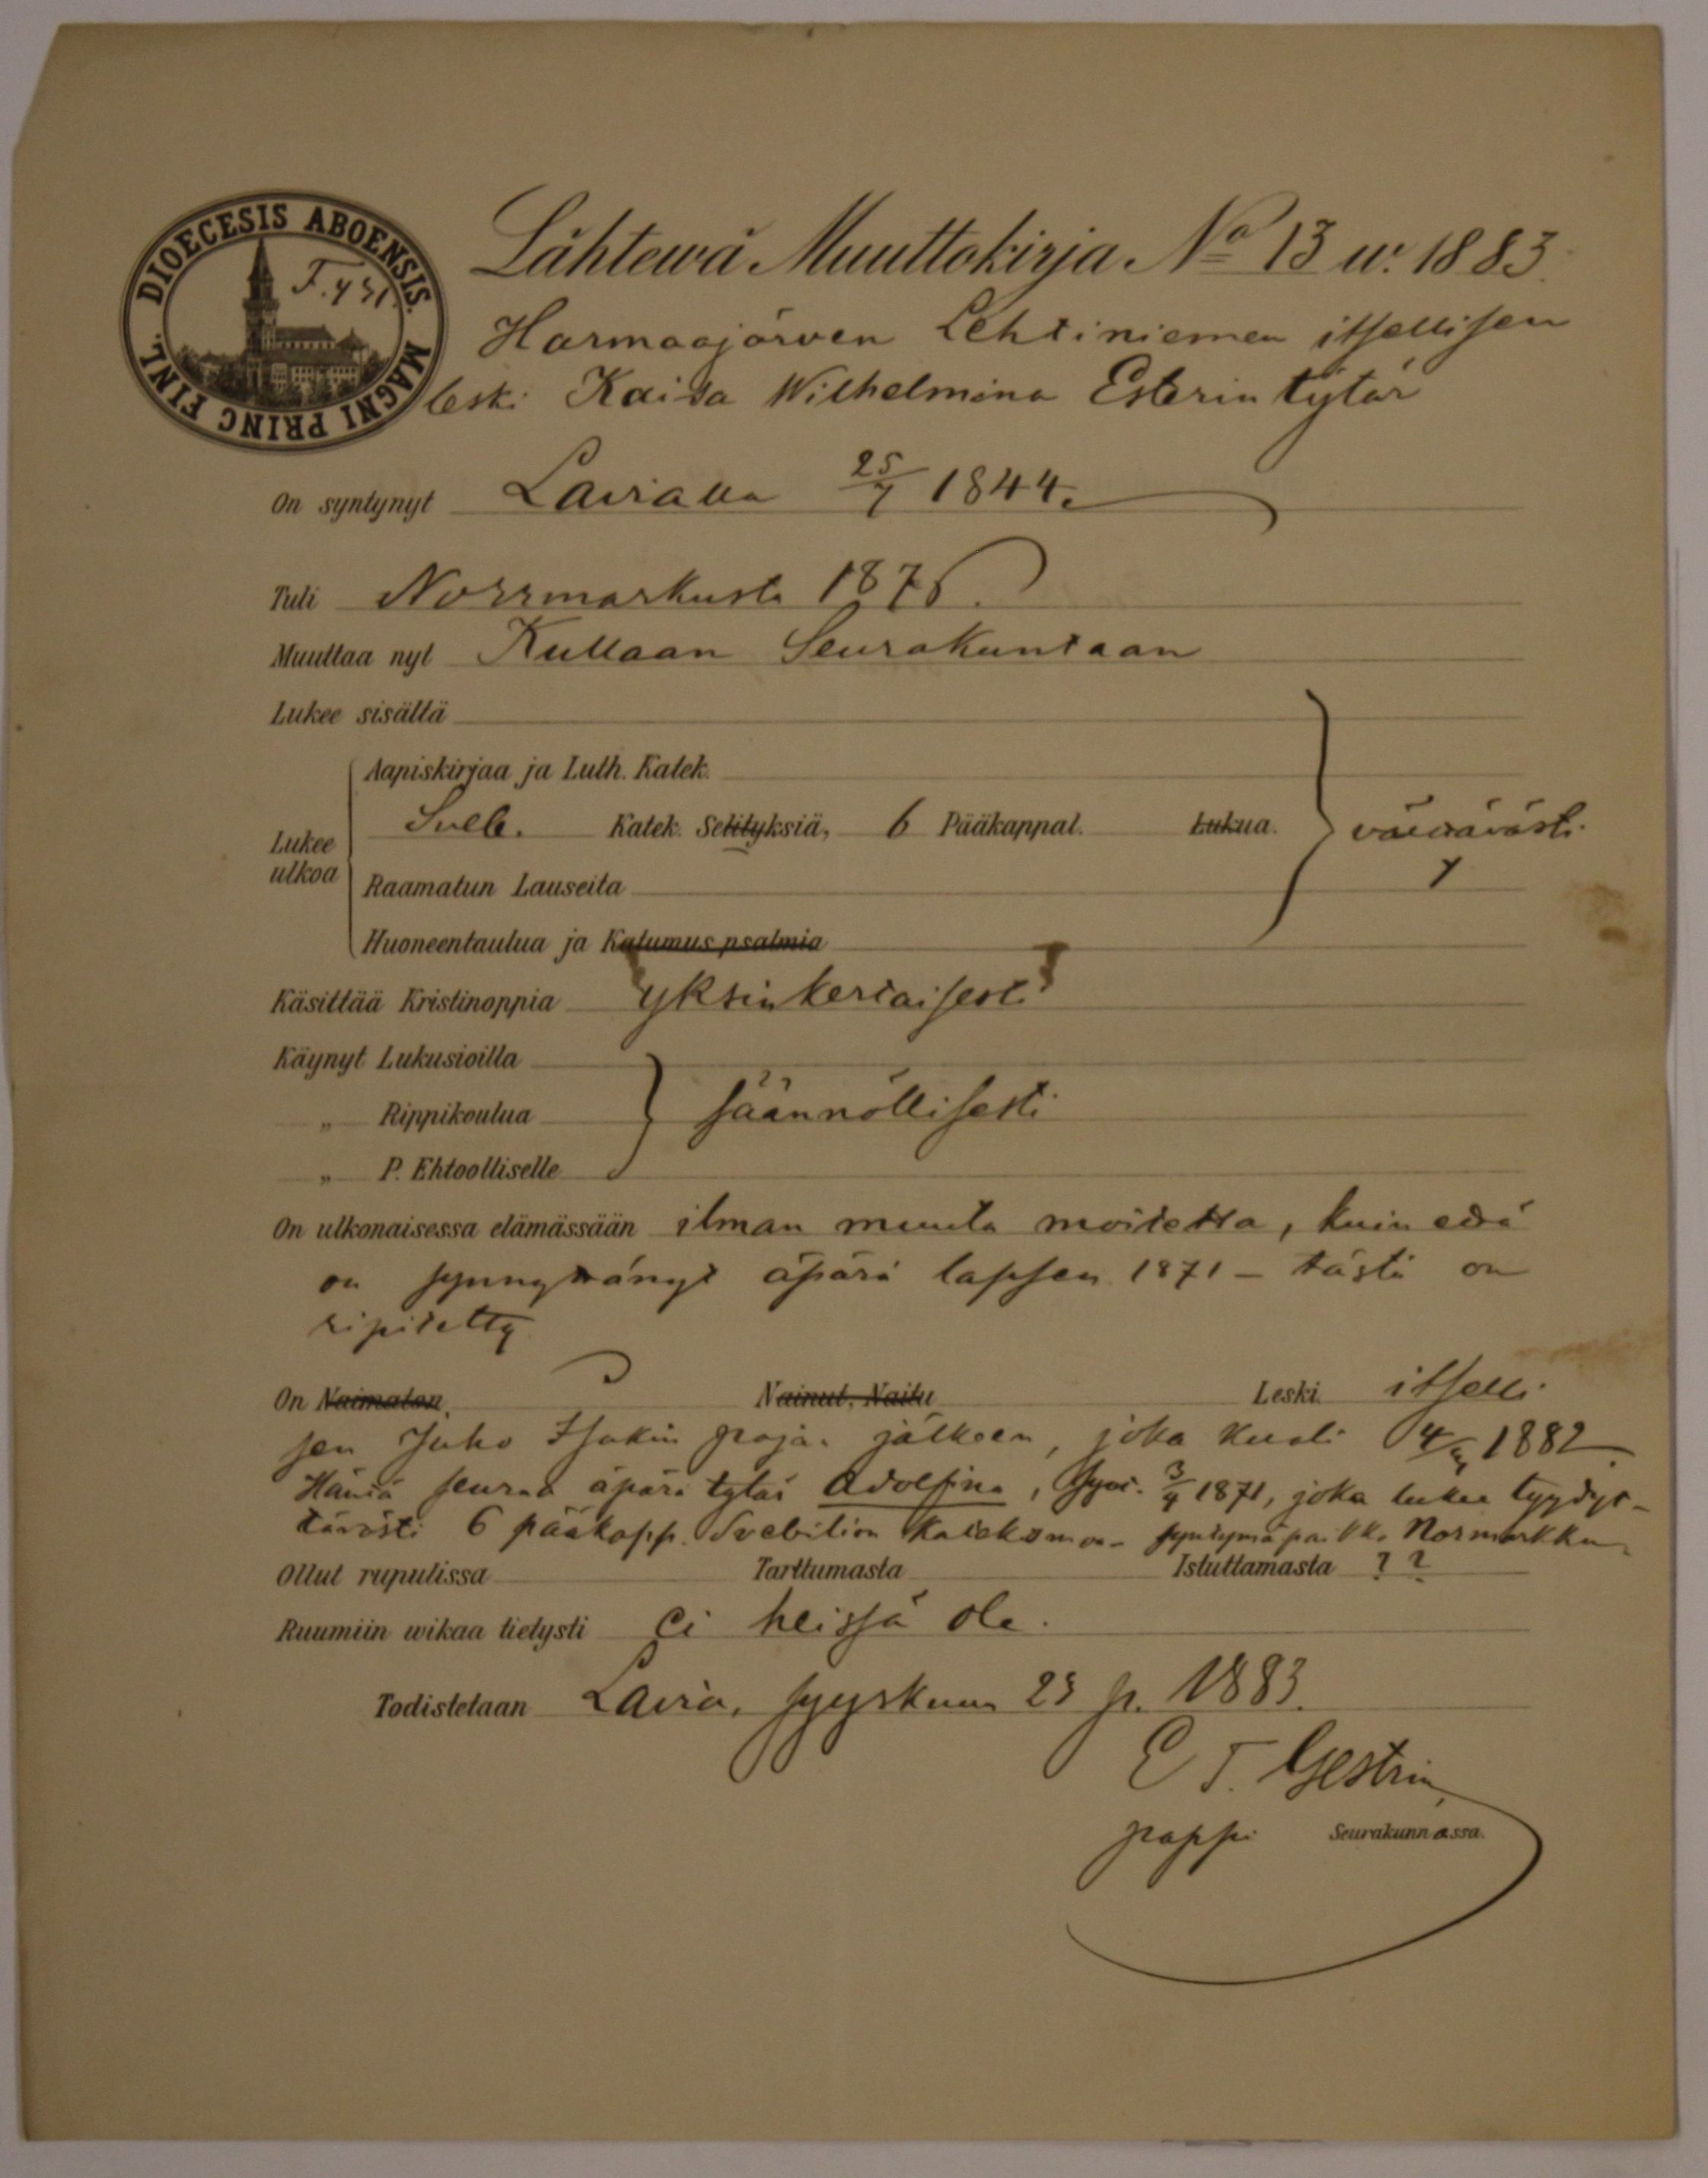 DIOECESIS ABOENSIS. MAGNI PRINC FINL.
F. 431.
Lähtewä Muuttokirja No 13 w. 1883.
Harmaajärven Lehtiniemen itsellisen
leski Kaisa Wilhelmina Esterintytär
On syntynyt Lavialla 25/7 1844.
Tuli Norrmarkusta 1876.
Muuttaa nyt Kullaan Seurakuntaan
Lukee sisältä
Aapiskirjaa ja Luth. Katek.
Lukee ulkoa Sveb. Katek. Selityksiä, 6 Pääkappal. Lukua. välttävästi
Raamatun Lauseita
Huoneentaulua ja Katumus psalmia
Käsittää Kristinoppia yksinkertaisesti
Käynyt Lukusioilla
„ Rippikoulua säännöllisesti
„ P. Ehtoolliselle
On ulkonaisessa elämässään ilman muuta moitetta, kuin että
on synnyttänyt äpärä lapsen 1871 – tästä on
ripitetty
On Naimaton. Nainut, Naitu Leski. itselli
sen Juho Isakin pojan jälkeen, joka kuoli 1882.
Häntä seuraa äpärä tytär Adolfina, synt. 3/4 1871, joka lukee tyydyt-
tävästi 6 pääkapp. Svebilion Katekismoa – syntymä paikka Normarkku
Ollut rupulissa Tarttumasta Istuttamasta ? ?
Ruumiin wikaa tietysti ei heissä ole.
Todistetaan Lavia, syyskuun 25 p. 1883.
E T. Gestrin,
pappi Seurakunnassa.